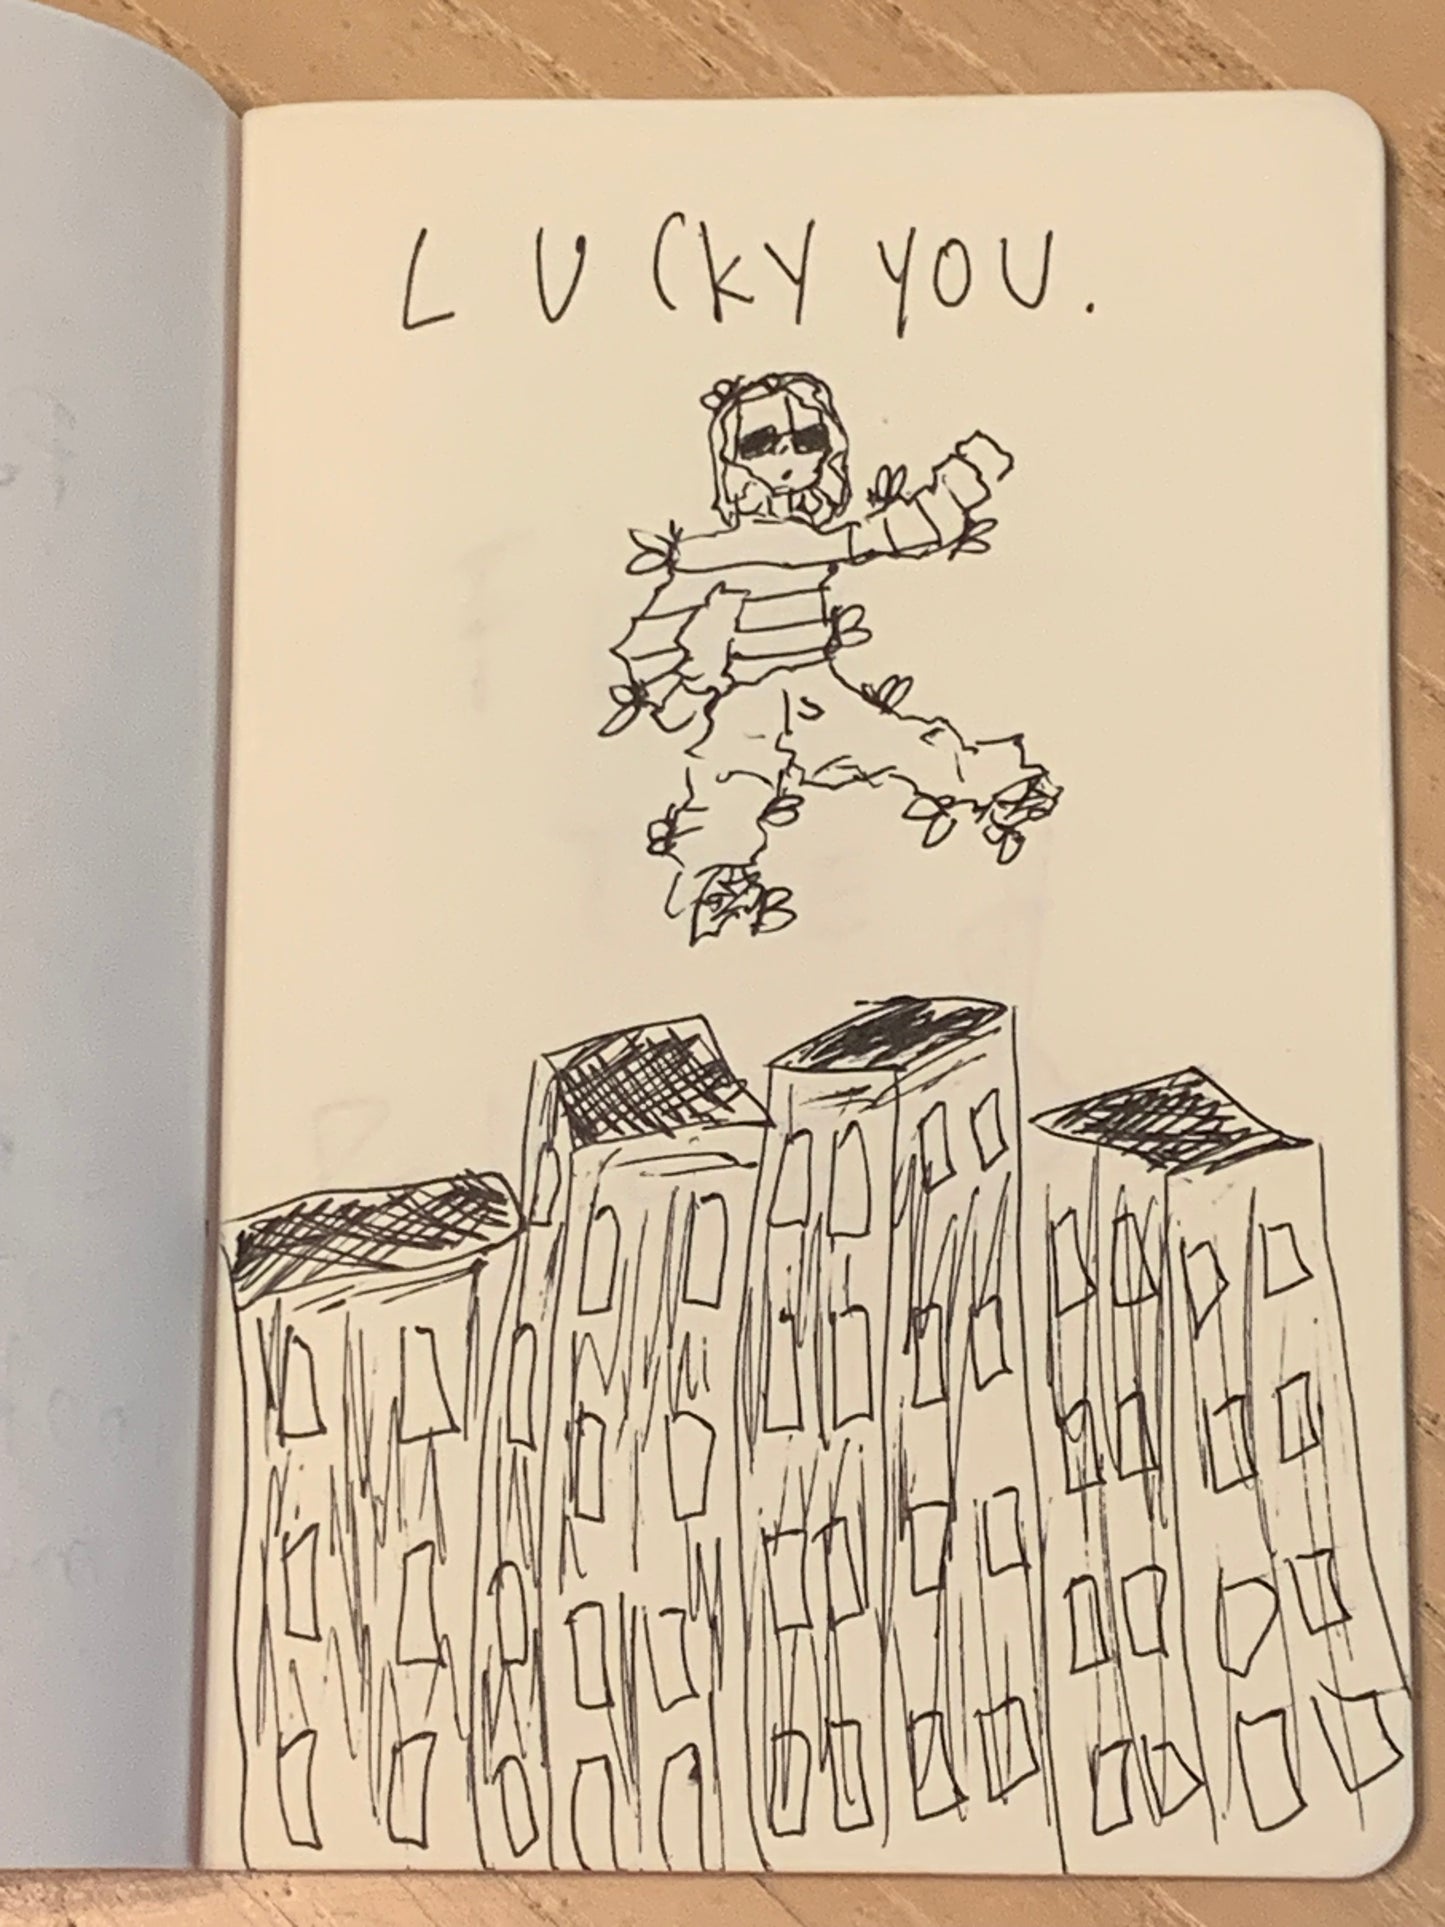 LUCKY YOU.